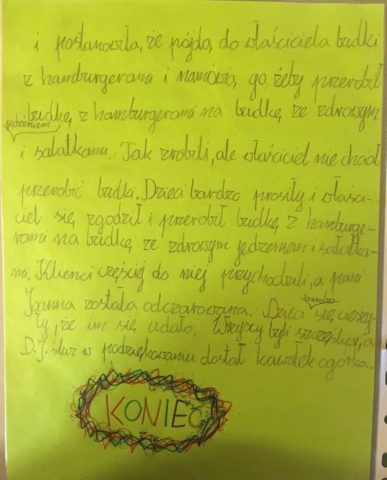 i postanowiła, że pójdą do właściciela budki
z hamburgerami i namówią go, żeby przerobił
budkę z hamburgerami na budkę ze zdrowym
jedzeniem
i sałatkami. Tak zrobili, ale właściciel nie chciał
przerobić budki. Dzieci bardzo prosiły i właści-
ciel się zgodził i przerobił budkę z hamburge-
rami na budkę ze zdrowym jedzeniem i sałatka-
mi. Klienci częściej do niej przychodzili, a pani
Joanna została odczarowana. Dzieci bardzo się cieszy-
ły, że im się udało. Wszyscy byli szczęśliwi, a
D.J. w podziękowaniu dostał kawałek ogórka.
KONIEC